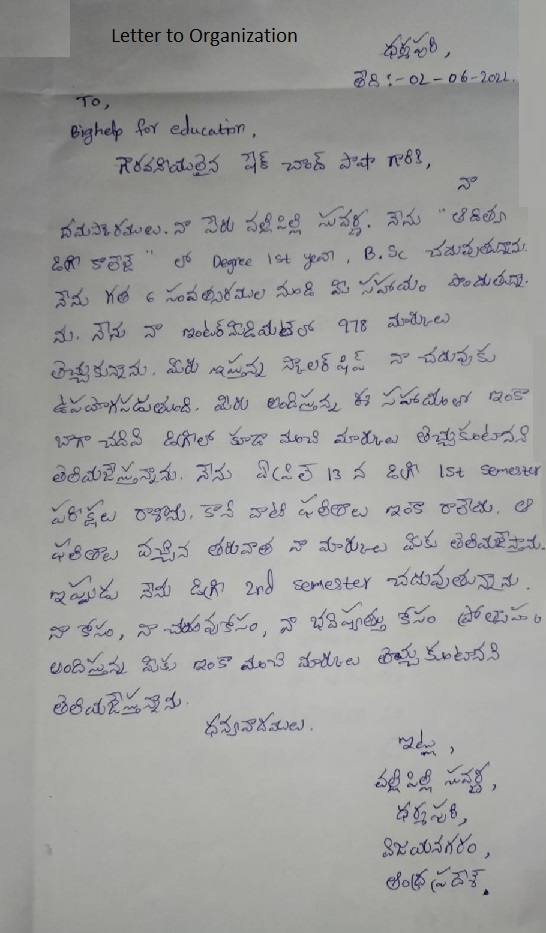 Letter to Organization
ధర్మపురి,
తేది :- 02-06-2022.
To,
Bighelp for education,
గౌరవనీయులైన షేక్ చాంద్ పాషా గారికి,
నా
నమస్కారములు. నా పేరు వల్లిపిల్లి సువర్ణ. నేను "ఆదిత్యా
డిగ్రీ కాలేజ్" లో Degree 1st year, B.Sc చదువుతున్నాను.
నేను గత 6 సంవత్సరముల నుండి మీ సహాయం పొందుతున్నా-
ను. నేను నా ఇంటర్మీడియట్‌లో 978 మార్కులు
తెచ్చుకున్నాను. మీరు ఇస్తున్న స్కాలర్ షిప్ నా చదువుకు
ఉపయోగపడుతుంది. మీరు అందిస్తున్న ఈ సహాయంతో ఇంకా
బాగా చదివి డిగ్రీలో కూడా మంచి మార్కులు తెచ్చుకుంటానని
తెలియజేస్తున్నాను. నేను ఏప్రిల్ 13 న డిగ్రీ 1st semester
పరీక్షలు రాశాను. కానీ వాటి ఫలితాలు ఇంకా రాలేదు. ఆ
ఫలితాలు వచ్చిన తరువాత నా మార్కులు మీకు తెలియజేస్తాను.
ఇప్పుడు నేను డిగ్రీ 2nd semester చదువుతున్నాను.
నా కోసం, నా చదువుకోసం, నా భవిష్యత్తు కోసం ప్రోత్సాహం
అందిస్తున్న మీకు ఇంకా మంచి మార్కులు తెచ్చుకుంటానని
తెలియజేస్తున్నాను.
ధన్యవాదములు.
ఇట్లు,
వల్లిపిల్లి సువర్ణ,
ధర్మపురి,
విజయనగరం,
ఆంధ్రప్రదేశ్.